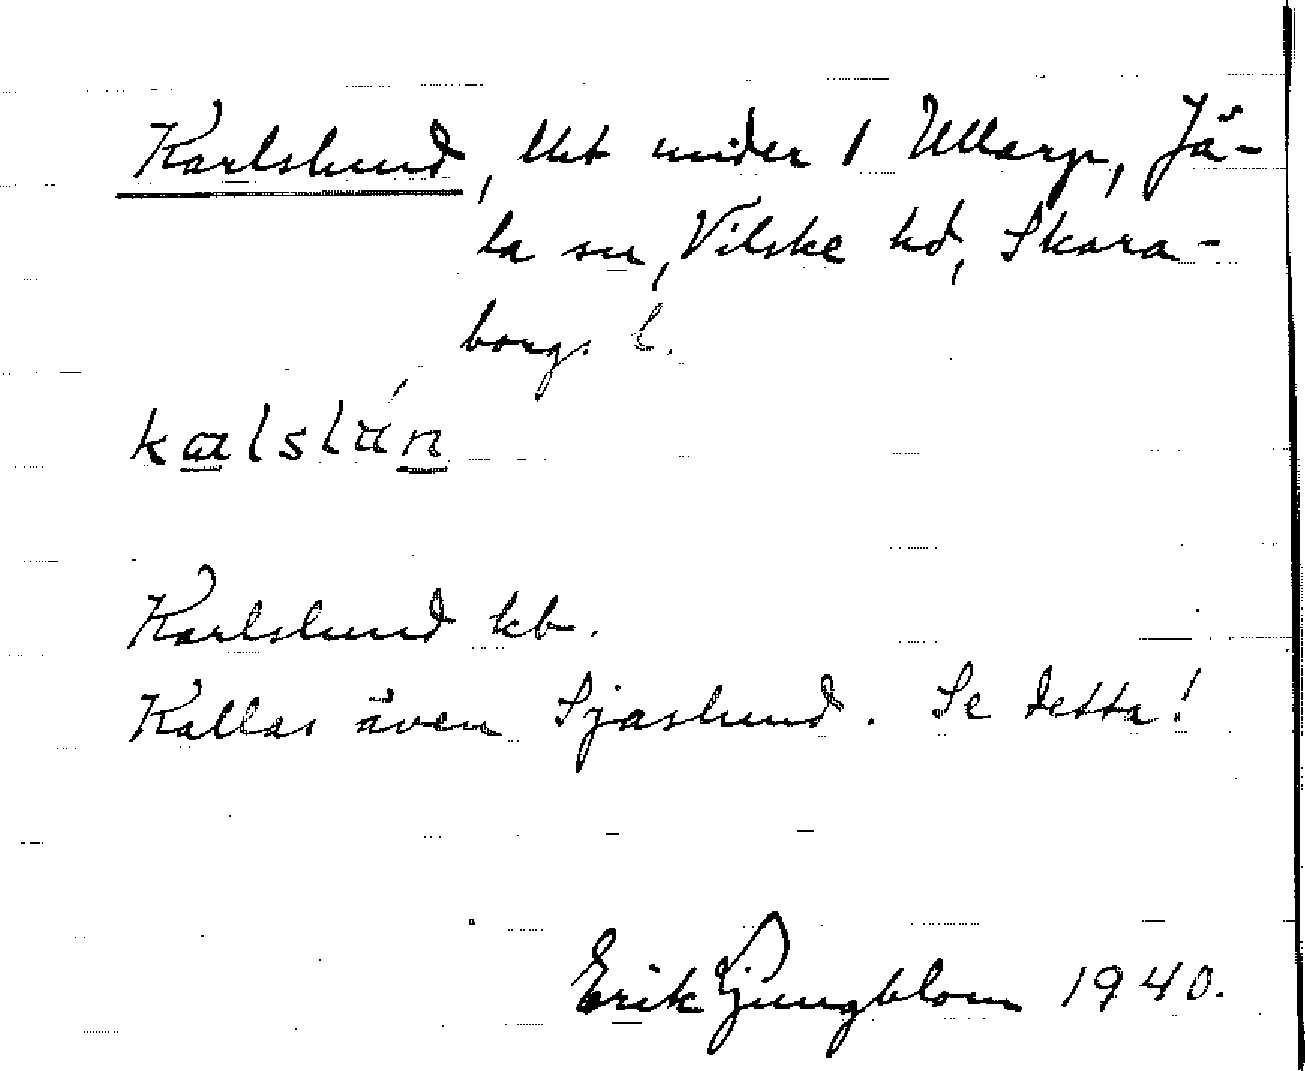 Karlslund, lht under 1 Ullarp, Jä-
la sn, Vilske hd, Skara-
borg. l.
kalslún
Karlslund kb.
Kallas även Sjaslund. Se detta!
Erik Ljungblom 1940.